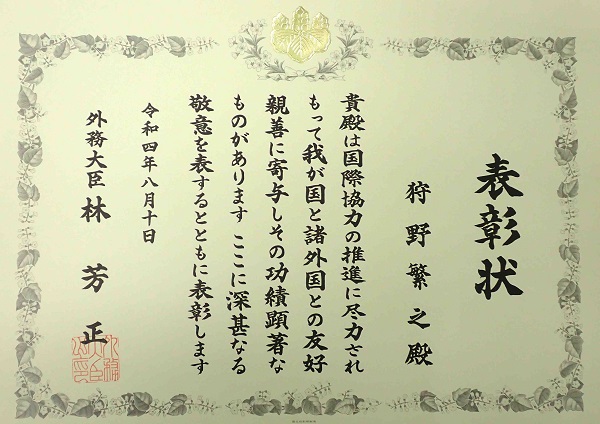 表彰状
狩野繁之殿
貴殿は国際協力の推進に尽力され
もって我が国と諸外国との友好
親善に寄与しその功績顕著な
ものがあります ここに深甚なる
敬意を表するとともに表彰します
令和四年八月十日
外務大臣 林 芳正